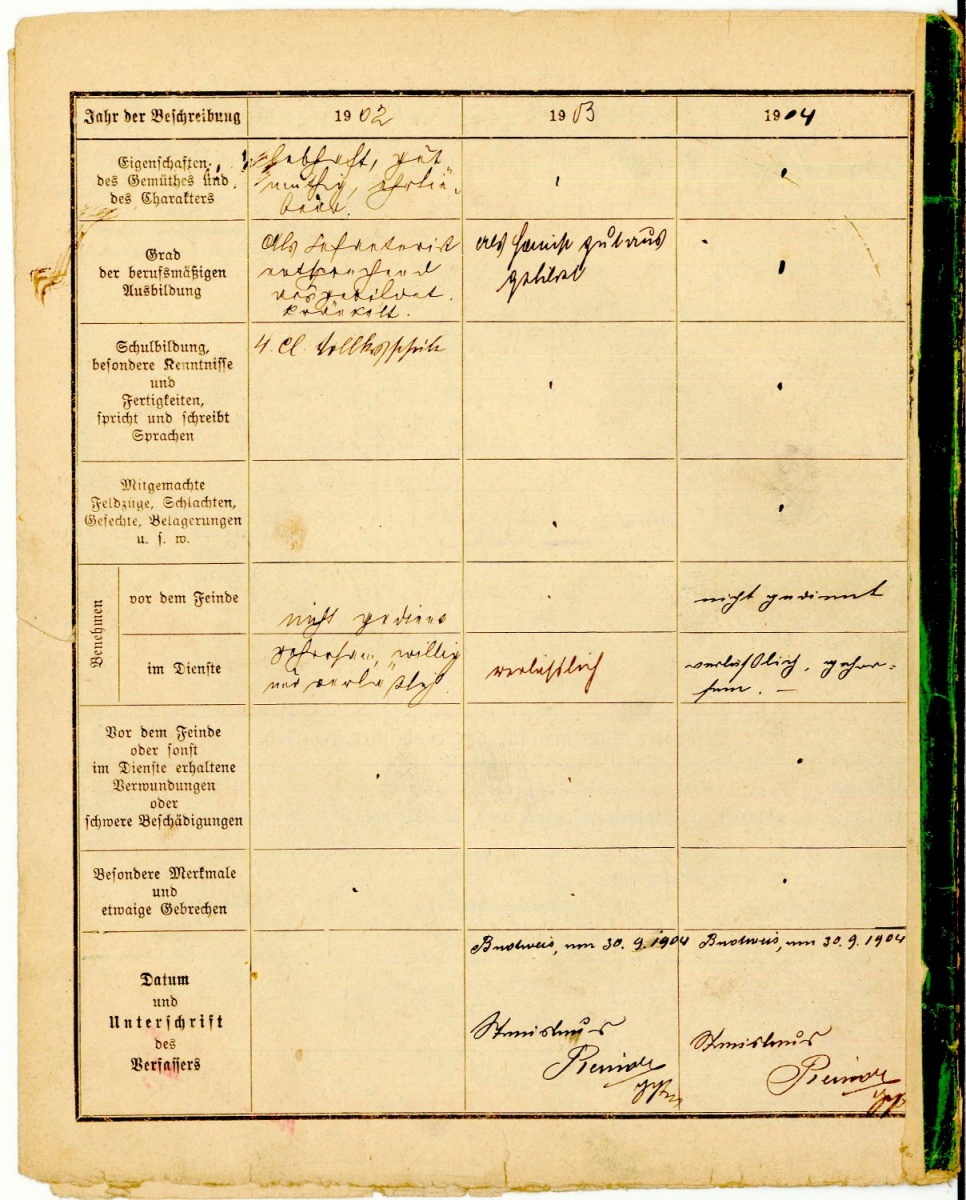 Jahr der Beschreibung
1902
1903
1904
Eigenschaften
des Gemüthes und
des Charakters
lebhaft, gut-
müthig,
Grad
der berufsmäßigen
Ausbildung
Als Infanterist
entsprechend
ausgebildet.
als
Schulbildung,
besondere Kenntnisse
und
Fertigkeiten,
spricht und schreibt
Sprachen
4. Cl. Volksschule
Mitgemachte
Feldzüge, Schlachten,
Gefechte, Belagerungen
u. s. w.
Benehmen
vor dem Feinde
nicht gedient
nicht gedient
im Dienste
gehorsam, willig
und verläßlich.
verläßlich
verläßlich, gehor-
sam. –
Vor dem Feinde
oder sonst
im Dienste erhaltene
Verwundungen
oder
schwere Beschädigungen
Besondere Merkmale
und
etwaige Gebrechen
Datum
und
Unterschrift
des
Verfassers
Budweis, am 30. 9. 1904
Budweis, am 30. 9. 1904